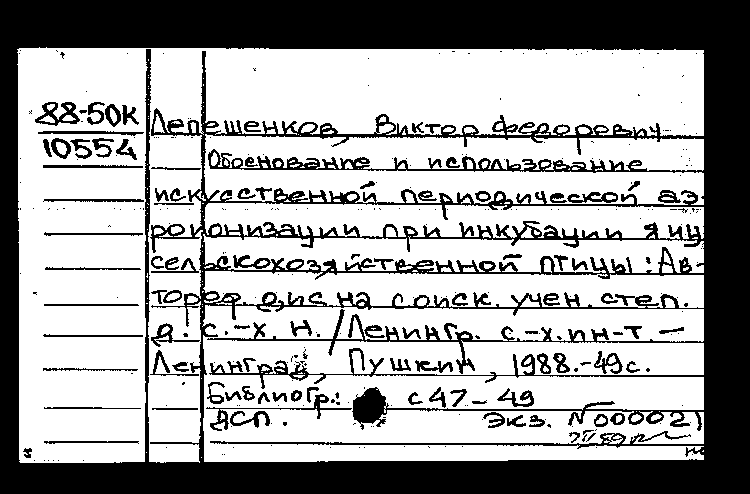 88-50К
10554
Лепешенков, Виктор Федорович
Обоснование и использование
искусственной периодической аэ-
роионизации при инкубации яиц
сельскохозяйственной птицы: Ав-
тореф. дис на соиск. учен. степ.
д. с.-х. н. / Ленингр. с.-х. ин-т. —
Ленинград, Пушкин, 1988.-49с.
Библиогр.: с 47-49
ДСП. Экз. №000021